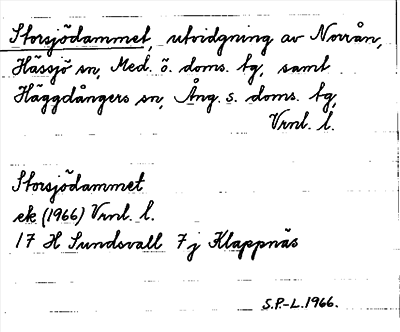 Storsjödammet, utvidgning av Norrån,
Hässjö sn, Med. ö. doms. tg, samt
Häggdångers sn, Ång. s. doms. tg,
Vrnl. l.
Storsjödammet
ek (1966) Vrnl. l.
17 H Sundsvall 7 j Klappnäs
S.P.-L. 1966.